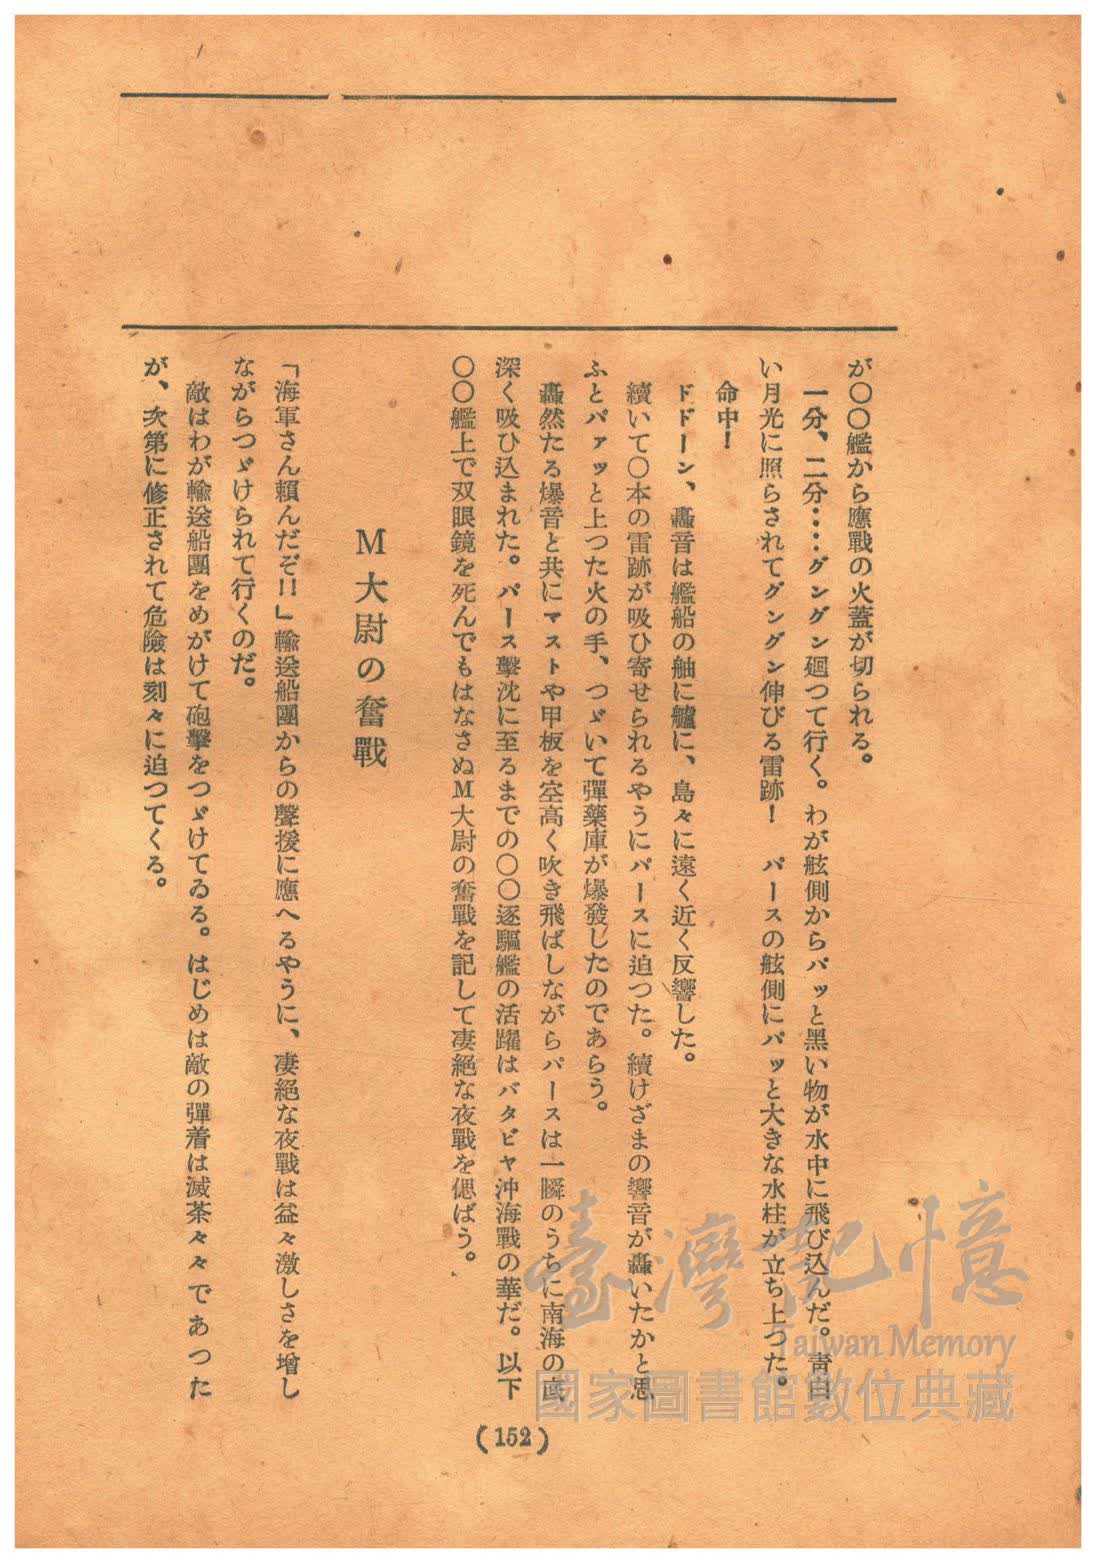 が〇〇艦から應戰の火蓋が切られる。
一分、二分‥‥グングン廻つて行く。わが舷側からパッと黑い物が水中に飛び込んだ。靑白
い月光に照らされてグングン伸びる雷跡！　パースの舷側にパッと大きな水柱が立ち上つた。
命中！
ドドーン、轟音は艦船の舳に艫に、島々に遠く近く反響した。
續いて〇本の雷跡が吸ひ寄せられるやうにパースに迫つた。續けざまの響音が轟いたかと思
ふとパァッと上つた火の手、つゞいて彈藥庫が爆發したのであらう。
轟然たる爆音と共にマストや甲板を空高く吹き飛ばしながらパースは一瞬のうちに南海の底
深く吸ひ込まれた。パース擊沈に至るまでの〇〇逐驅艦の活躍はバタビヤ沖海戰の華だ。以下
〇〇艦上で双眼鏡を死んでもはなさぬＭ大尉の奮戰を記して凄絕な夜戰を偲ばう。
Ｍ大尉の奮戰
「海軍さん賴んだぞ!!」輸送船團からの聲援に應へるやうに、凄絕な夜戰は益々激しさを增し
ながらつゞけられて行くのだ。
敵はわが輸送船團をめがけて砲擊をつゞけてゐる。はじめは敵の彈着は滅茶々々であつた
が、次第に修正されて危險は刻々に迫つてくる。
(152)
臺灣記憶
Taiwan Memory
國家圖書館數位典藏